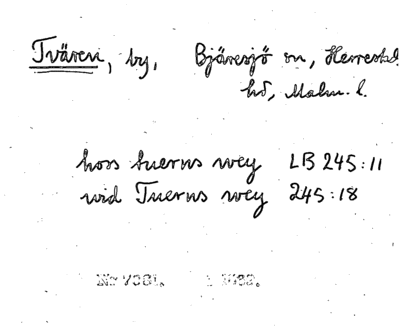 Tvären, by, Bjäresjö sn, Herrestad
hd, Malm. l.
hoss tuerns wey LB 245:11
wid Tuerns wey 245:18